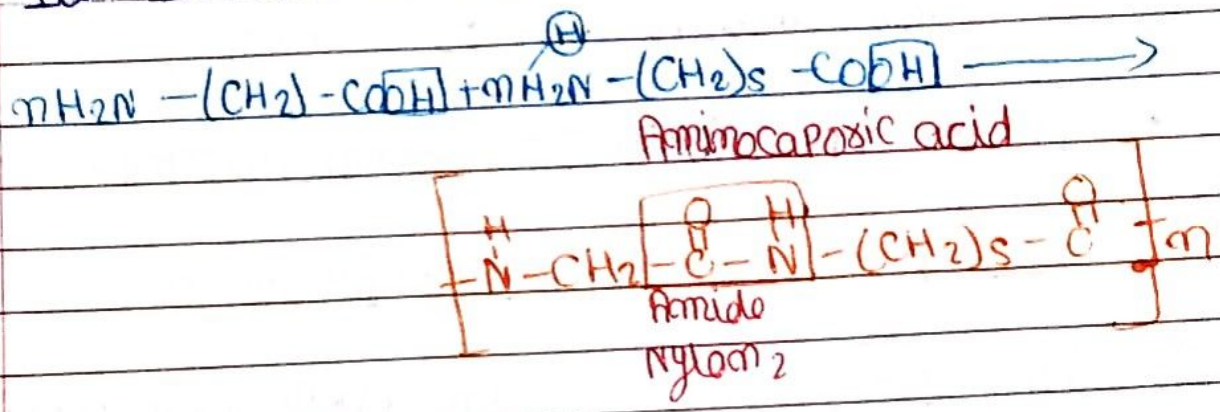 H
nH2N -(CH2) -COOH + nH2N -(CH2)5 -COOH ⟶
Aminocaporic acid
H O H O
[-N-CH2-C-N-(CH2)5-C-]n
Amide
Nylon2